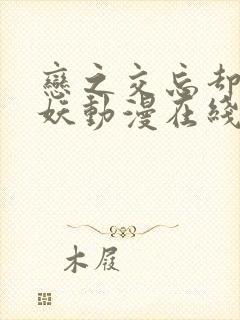 戀之交忘却
妖動漫在綫
木屐